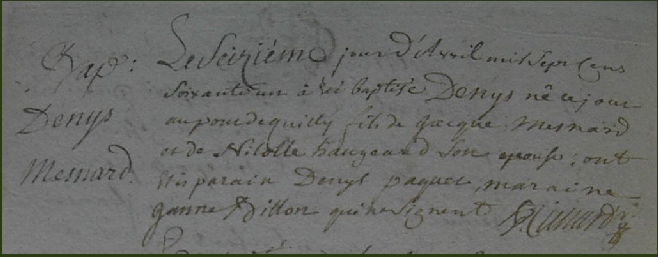 Bap:
Denys
Mesnard.
Le Seiziéme jour d'Avril mil Sept Cens
soixante un à été baptisé Denys né ce jour
au pont de quilly fils de Jacque Mesnard
et de Nicolle hauzeard Son epouse; ont
étés parain Denys paquet, maraine
Janne Dillon qui ne signent